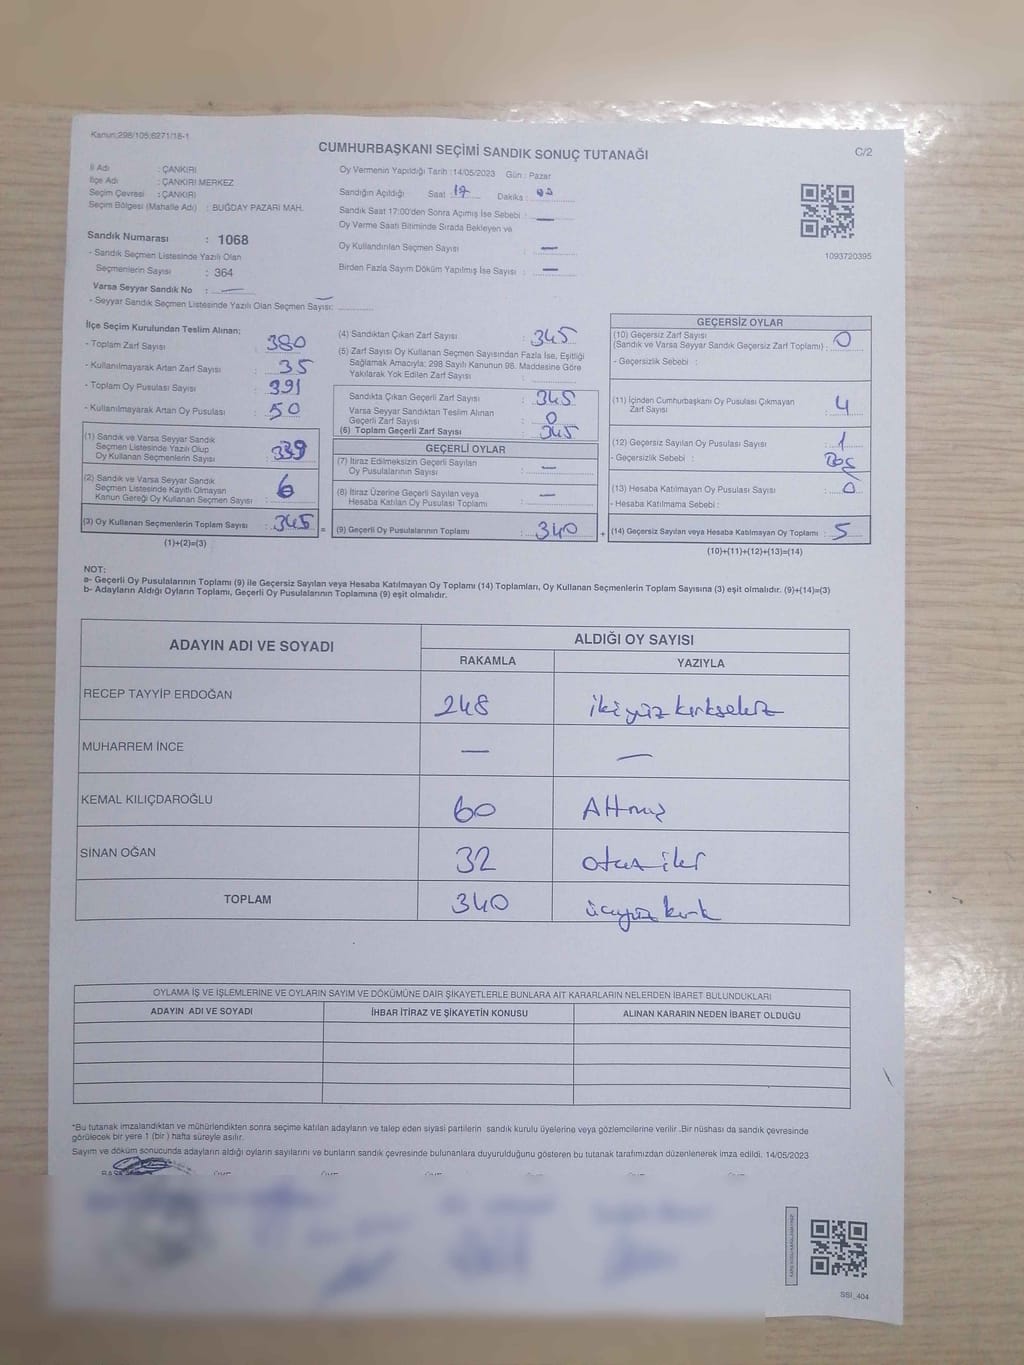 Kanun:298/105;6271/18-1
CUMHURBAŞKANI SEÇİMİ SANDIK SONUÇ TUTANAĞI
C/2
İl Adı : ÇANKIRI
İlçe Adı : ÇANKIRI MERKEZ
Seçim Çevresi : ÇANKIRI
Seçim Bölgesi (Mahalle Adı) : BUĞDAY PAZARI MAH.
Sandık Numarası : 1068
- Sandık Seçmen Listesinde Yazılı Olan
Seçmenlerin Sayısı : 364
Varsa Seyyar Sandık No : —
- Seyyar Sandık Seçmen Listesinde Yazılı Olan Seçmen Sayısı: —
Oy Vermenin Yapıldığı Tarih :14/05/2023 Gün : Pazar
Sandığın Açıldığı Saat 17 Dakika :
Sandık Saat 17:00'den Sonra Açımış İse Sebebi : —
Oy Verme Saati Bitiminde Sırada Bekleyen ve
Oy Kullandırılan Seçmen Sayısı : —
Birden Fazla Sayım Döküm Yapılmış İse Sayısı : —
1093720395
İlçe Seçim Kurulundan Teslim Alınan;
- Toplam Zarf Sayısı : 380
- Kullanılmayarak Artan Zarf Sayısı : 35
- Toplam Oy Pusulası Sayısı : 391
- Kullanılmayarak Artan Oy Pusulası : 50
(1) Sandık ve Varsa Seyyar Sandık
Seçmen Listesinde Yazılı Olup
Oy Kullanan Seçmenlerin Sayısı : 339
(2) Sandık ve Varsa Seyyar Sandık
Seçmen Listesinde Kayıtlı Olmayan
Kanun Gereği Oy Kullanan Seçmen Sayısı : 6
(3) Oy Kullanan Seçmenlerin Toplam Sayısı : 345 =
(1)+(2)=(3)
(4) Sandıktan Çıkan Zarf Sayısı : 345
(5) Zarf Sayısı Oy Kullanan Seçmen Sayısından Fazla İse, Eşitliği
Sağlamak Amacıyla; 298 Sayılı Kanunun 98. Maddesine Göre
Yakılarak Yok Edilen Zarf Sayısı :
Sandıkta Çıkan Geçerli Zarf Sayısı : 345
Varsa Seyyar Sandıktan Teslim Alınan
Geçerli Zarf Sayısı : 0
(6) Toplam Geçerli Zarf Sayısı : 345
GEÇERLİ OYLAR
(7) İtiraz Edilmeksizin Geçerli Sayılan
Oy Pusulalarının Sayısı : —
(8) İtiraz Üzerine Geçerli Sayılan veya
Hesaba Katılan Oy Pusulası Toplamı : —
(9) Geçerli Oy Pusulalarının Toplamı : 340 +
GEÇERSİZ OYLAR
(10) Geçersiz Zarf Sayısı
(Sandık ve Varsa Seyyar Sandık Geçersiz Zarf Toplamı) : 0
- Geçersizlik Sebebi :
(11) İçinden Cumhurbaşkanı Oy Pusulası Çıkmayan
Zarf Sayısı : 4
(12) Geçersiz Sayılan Oy Pusulası Sayısı : 1
- Geçersizlik Sebebi : Boş
(13) Hesaba Katılmayan Oy Pusulası Sayısı : 0
- Hesaba Katılmama Sebebi :
(14) Geçersiz Sayılan veya Hesaba Katılmayan Oy Toplamı : 5
(10)+(11)+(12)+(13)=(14)
NOT:
a- Geçerli Oy Pusulalarının Toplamı (9) ile Geçersiz Sayılan veya Hesaba Katılmayan Oy Toplamı (14) Toplamları, Oy Kullanan Seçmenlerin Toplam Sayısına (3) eşit olmalıdır. (9)+(14)=(3)
b- Adayların Aldığı Oyların Toplamı, Geçerli Oy Pusulalarının Toplamına (9) eşit olmalıdır.
ADAYIN ADI VE SOYADI
ALDIĞI OY SAYISI
RAKAMLA YAZIYLA
RECEP TAYYİP ERDOĞAN 248 ikiyüzkırksekiz
MUHARREM İNCE — —
KEMAL KILIÇDAROĞLU 60 Altmış
SİNAN OĞAN 32 otuziki
TOPLAM 340 üçyüzkırk
OYLAMA İŞ VE İŞLEMLERİNE VE OYLARIN SAYIM VE DÖKÜMÜNE DAİR ŞİKAYETLERLE BUNLARA AİT KARARLARIN NELERDEN İBARET BULUNDUKLARI
ADAYIN ADI VE SOYADI İHBAR İTİRAZ VE ŞİKAYETİN KONUSU ALINAN KARARIN NEDEN İBARET OLDUĞU
*Bu tutanak imzalandıktan ve mühürlendikten sonra seçime katılan adayların ve talep eden siyasi partilerin sandık kurulu üyelerine veya gözlemcilerine verilir .Bir nüshası da sandık çevresinde
görülecek bir yere 1 (bir ) hafta süreyle asılır.
Sayım ve döküm sonucunda adayların aldığı oyların sayılarını ve bunların sandık çevresinde bulunanlara duyurulduğunu gösteren bu tutanak tarafımızdan düzenlenerek imza edildi. 14/05/2023
SSI_404